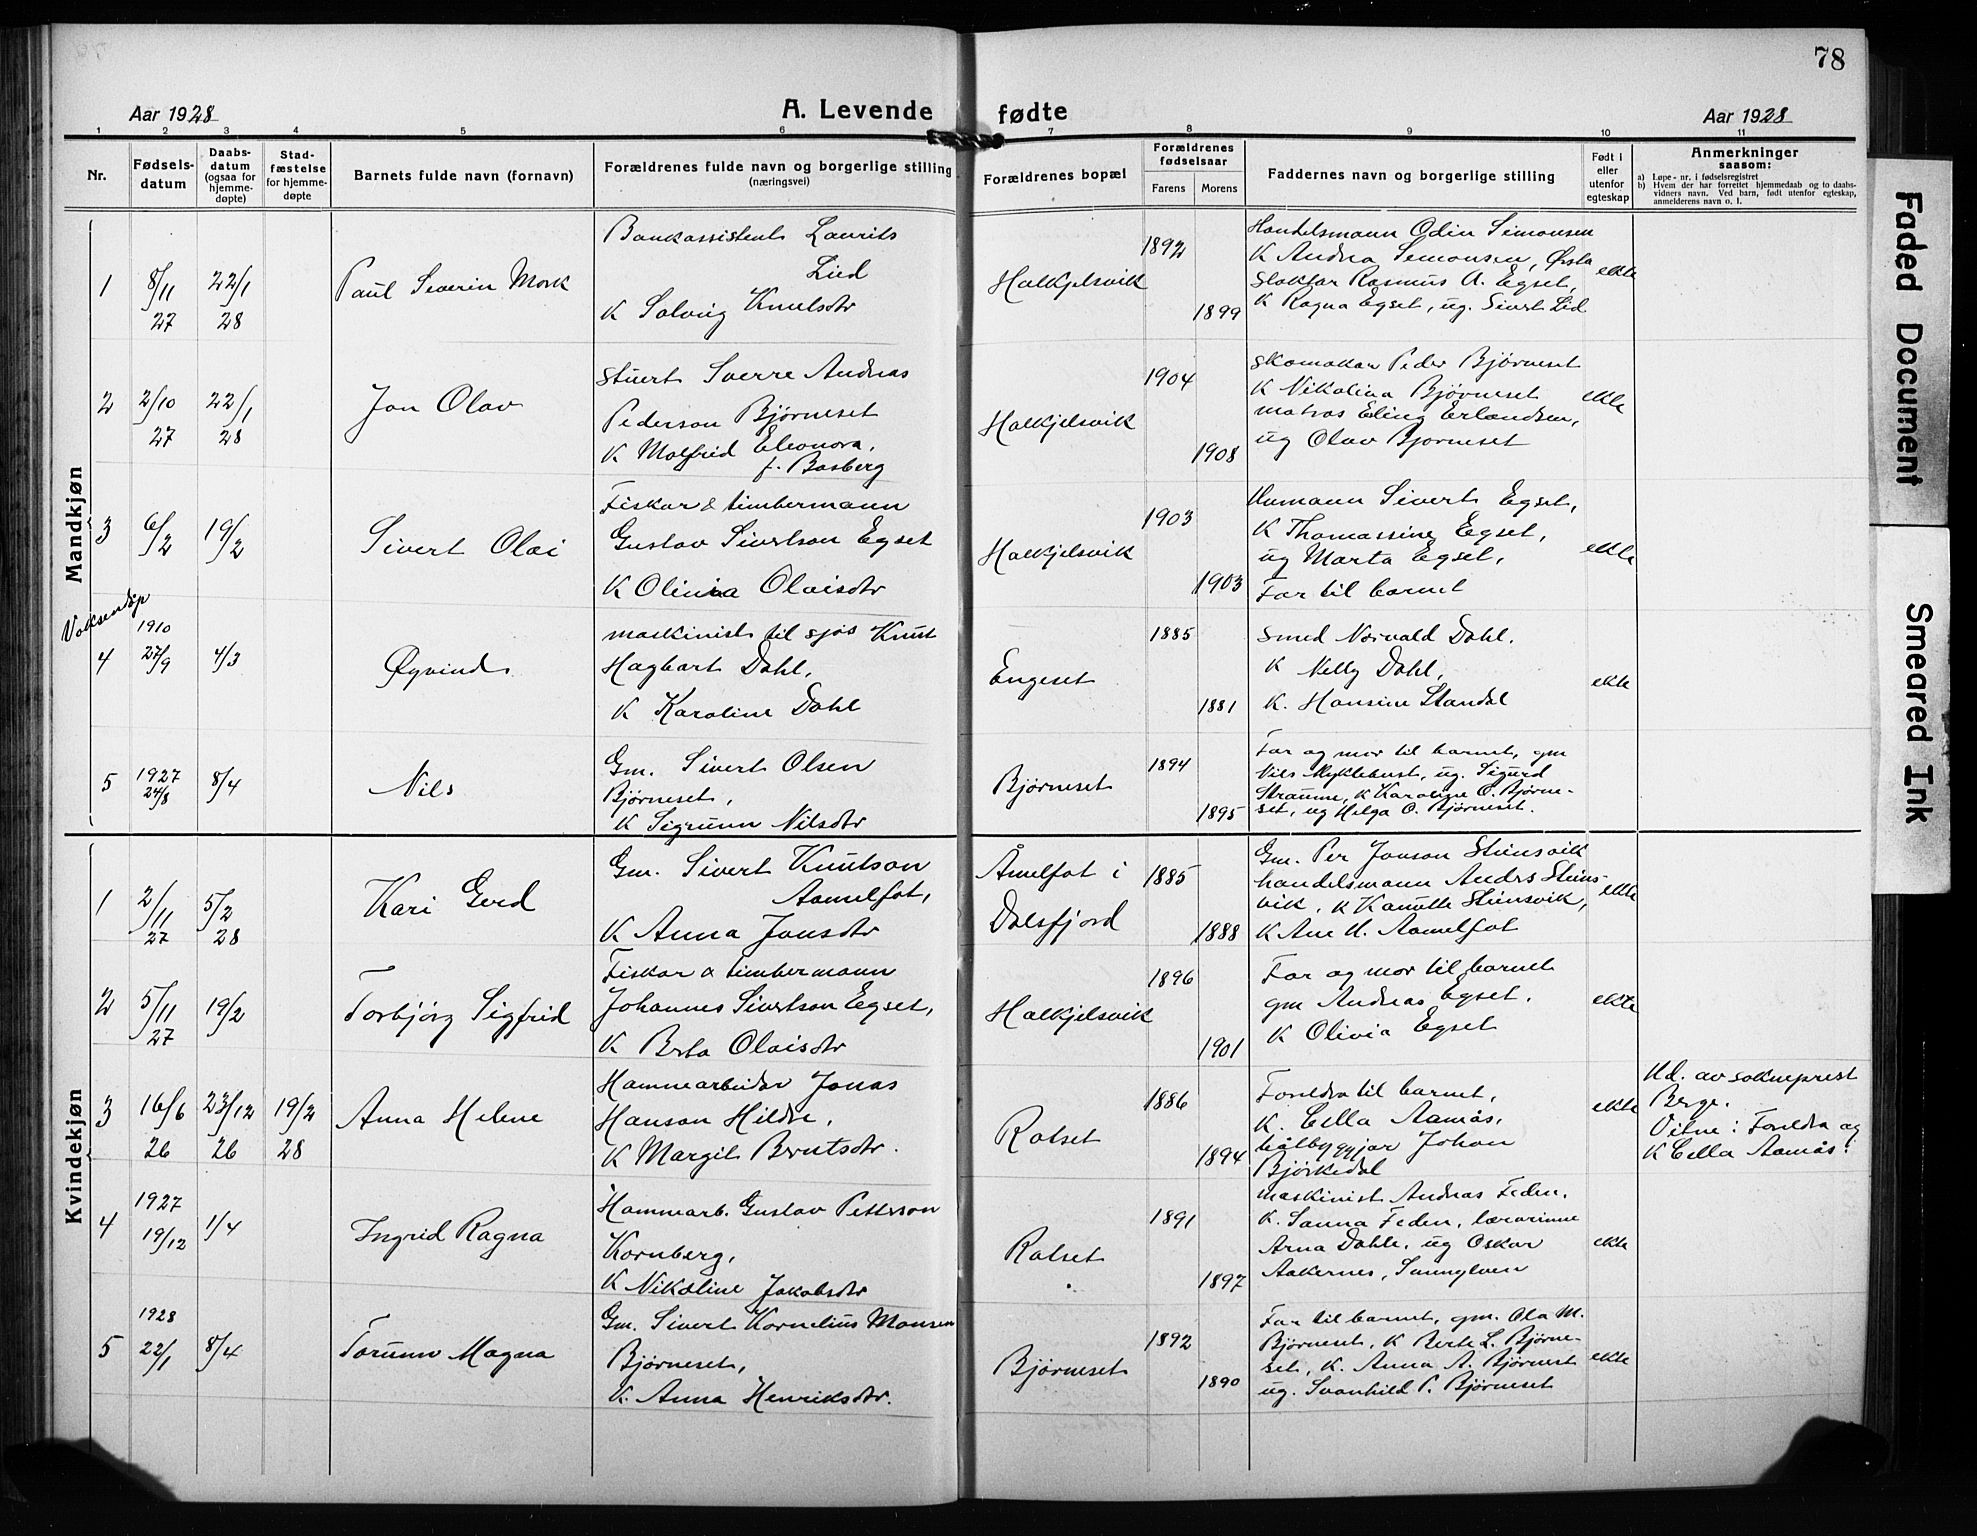 78
Aar 1928
A. Levende fødte
Aar 1928
1 2 3 4 5 6 7 8 9 10 11
Nr.
Fødsels-
datum
Daabs-
datum
(ogsaa for
hjemme-
døpte)
Stad-
fæstelse
for hjemme-
døpte
Barnets fulde navn (fornavn)
Forældrenes fulde navn og borgerlige stilling
(næringsvei)
Forældrenes bopæl
Forældrenes
fødselsaar
Farens Morens
Faddernes navn og borgerlige stilling
Født i
eller
utenfor
egteskap
Anmerkninger
saasom:
a) Løpe-nr. i fødselsregistret
b) Hvem der har forrettet hjemmedaab og to daabs-
vidners navn. Ved barn, født utenfor egteskap,
anmelderens navn o. l.
Mandkjøn
1
8/11
27
22/1
28
Paul Severin Mork
Bankassistent Laurits
Lied
K Solveig Knutsdtr
Halkjelsvik
1892
1899
Handelsmann Odin Simonsen
K Andrea Simonsen, Ørsta
Slaktar Rasmus A. Egset,
K Ragna Egset, ug. Sivert Lid
ekte
2
2/10
27
22/1
28
Jon Olav
Stuert Sverre Andreas
Pederson Bjørneset
K Molfrid Eleonora,
f. Basberg
Halkjelsvik
1904
1908
Skomakar Peder Bjørneset
K Nikolina Bjørneset
matros Eling Erlandsen,
ug Olav Bjørneset
ekte
3
6/2
19/2
Sivert Olai
Fiskar & timbermann
Gustav Sivertson Egset
K Olivia Olaisdtr
Halkjelsvik
1903
1903
Sivert Egset,
K Thomassine Egset,
ug Marta Egset,
Far til barnet
ekte
Voksendøp
4
1910
27/9
4/3
Øyvind
maskinist til sjøs Knut
Hagbart Dahl,
K Karoline Dahl
Engeset
1885
1881
Smed Norvald Dahl,
K Nelly Dahl,
K. Hansine Standal
ekte
5
1927
24/8
8/4
Nils
Gm. Sivert Olsen
Bjørneset,
K Sigrunn Nilsdtr
Bjørneset
1894
1895
Far og mor til barnet, gm
Nils Myklebust, ug. Sigurd
Straume, K Karoline O. Bjørne-
set, ug Helga O. Bjørneset.
Kvindekjøn
1
2/11
27
5/2
28
Kari Gerd
Gm. Sivert Knutson
Aamelfot,
K Anna Jonsdtr
Åmelfot i
Dalsfjord
1885
1888
Gm. Per Jonson Steinsvik
handelsmann Anders Steins-
vik, K Kanutte Steinsvik,
K Ane U. Aamelfot
ekte
2
5/11
27
19/2
Torbjørg Sigfrid
Fiskar & timbermann
Johannes Sivertson Egset,
K Berta Olaisdtr
Halkjelsvik
1896
1901
Far og mor til barnet
gm Andreas Egset,
K Olivia Egset
ekte
3
16/6
26
23/12
26
19/2
28
Anna Helene
Hamnearbeidar Jonas
Hanson Hildre,
K Margit Berntsdtr.
Rotset
1886
1894
Foreldra til barnet,
K. Cella Aamås,
båtbyggjar Johan
Bjørkedal
ekte
Ud. av sokneprest
Berge.
Vitne: Foreldra og
K Cella Aamås.
4
1927
19/12
1/4
Ingrid Ragna
Hamnarb. Gustav Petterson
Kornberg,
K Nikoline Jakobsdtr
Rotset
1891
1897
maskinist Andreas Feden,
K. Sanna Feden, lærarinne
Arna Dahle, ug Oskar
Aakernes, Sunnylven
ekte
5
1928
22/1
8/4
Torunn Magna
Gm. Sivert Kornelius Monsen
Bjørneset,
K. Anna Henriksdtr.
Bjørneset
1892
1890
Far til barnet, gm. Ola M.
Bjørneset, K Berte L. Bjørne-
set, K. Anna A. Bjørneset
ug. Svanhild P. Bjørneset
ekte
Faded Document
Smeared Ink